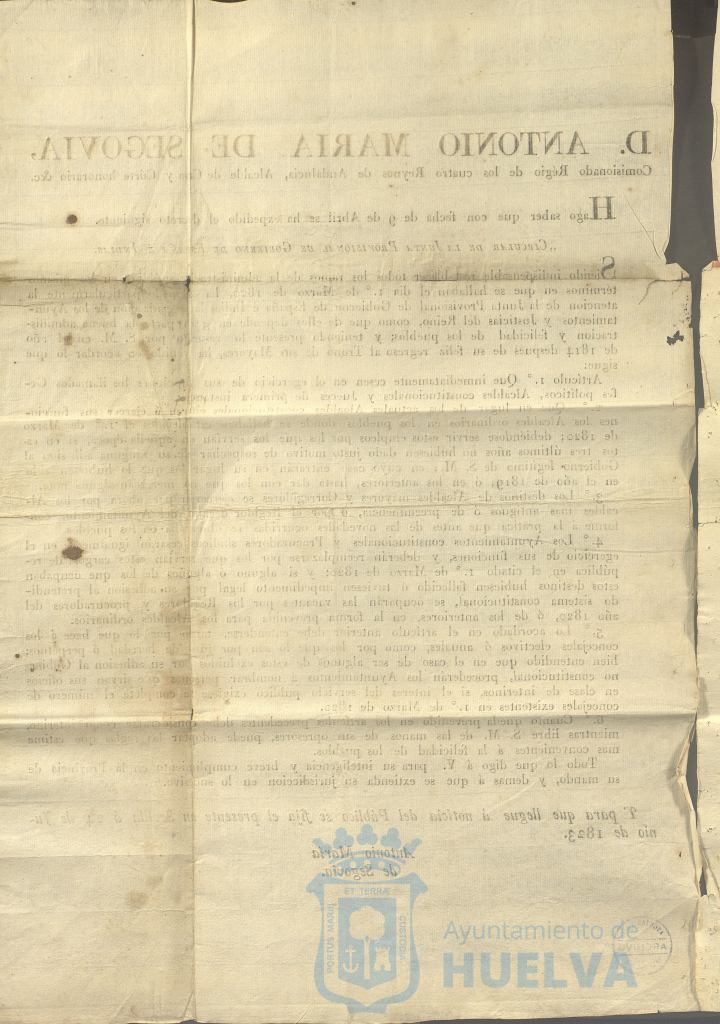 D. ANTONIO MARIA DE SEGOVIA,
Comisionado Régio de los cuatro Reynos de Andalucia, Alcalde de Casa y Córte honorario &c.
Hago saber que con fecha de 9 de Abril se ha expedido el decreto siguiente.
„CIRCULAR DE LA JUNTA PROVISIONAL DE GOBIERNO DE ESPAÑA É INDIAS.
Siendo indispensable restablecer todos los ramos de la administracion en los
términos en que se hallaban el dia 1.º de Marzo de 1820, la particularmente la
atencion de la Junta Provisional de Gobierno de España é Indias la de los Ayun-
tamientos y Justicias del Reino, como que de ellos la buena adminis-
tracion y felicidad de los pueblos; y teniendo presente lo resuelto por S. M. en el año
de 1814 despues de su feliz regreso al Trono de sus Mayores, ha acordar lo que
sigue:
Artículo 1.º Que inmediatamente cesen en el egercicio de sus los llamados Ge-
fes políticos, Alcaldes constitucionales y Jueces de primera instancia.
2.º Que en lugar de los actuales Alcaldes constitucionales á ejercer sus funcio-
nes los Alcaldes ordinarios en los pueblos donde se hallaban el 1.º de Marzo
de 1820; debiéndose servir estos empleos por los que los servian en aquella época, si en es-
tos tres últimos años no hubiesen dado justo motivo de sospechar al
Gobierno legítimo de S. M.; en cuyo caso entrarán en su lugar los que lo hubiesen sido
en el año de 1819, ó en los anteriores, hasta dar con los que no
3.º Los destinos de Alcaldes mayores y Corregidores se ahora por los Al-
caldes mas antiguos ó de preeminencia, ó por el Regidor del Ayuntamiento, con-
forme á la prática que antes de las novedades ocurridas en los pueblos.
4.º Los Ayuntamientos constitucionales y Procuradores síndicos cesarán igualmente en el
egercicio de sus funciones, y deberán reemplazarse por los que servian estos cargos de re-
pública en el citado 1.º de Marzo de 1820; y si alguno ó algunos de los que ocupaban
estos destinos hubiesen fallecido ó tuviesen impedimento legal por su adhesion al pretendi-
do sistema constitucional, se ocuparán las vacantes por los Regidores y procuradores del
año 1819, ó de los anteriores, en la forma prevenida para los Alcaldes ordinarios.
5.º Lo acordado en el artículo anterior debe entenderse, tanto por lo que hace á los
concejales electivos ó anuales, como por los que lo sean por juro de heredad ó perpétuos;
bien entendido que en el caso de ser algunos de estos excluidos por su adhesion al Gobier-
no constitucional, procederán los Ayuntamientos á nombrar personas que sirvan sus oficios
en clase de interinos, si el interes del servicio público exigiese se complete el número de
concejales existentes en 1.º de Marzo de 1820.
6.º Cuanto queda prevenido en los artículos precedentes debe interino,
mientras libre S. M. de las manos de sus opresores, puede adoptar las reglas que estime
mas convenientes á la felicidad de los pueblos.
Todo lo que digo á V. para su inteligencia y breve cumplimiento en la Provincia de
su mando, y demas á que se extienda su jurisdiccion en lo sucesivo.
Y para que llegue á noticia del Público se fija el presente en Sevilla á 24 de Ju-
nio de 1823.
Antonio María
de Segovia.
ET TERRÆ
PORTUS MARIS
CUSTODIA
Ayuntamiento de
HUELVA